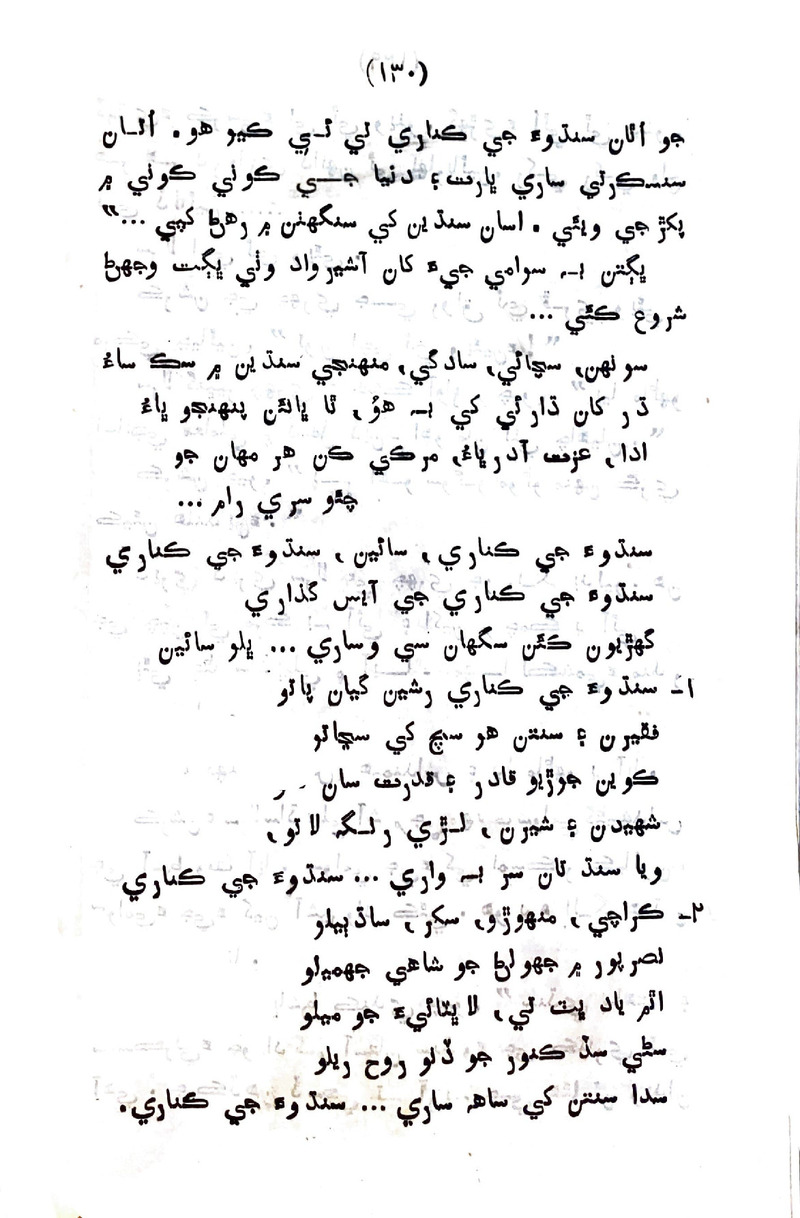 (۱۳۰)
جو اُتان سنڌوءَ جي ڪناري تي ئي ڪيو هو. اُتان
سنسڪرتي ساري ڀارت ۽ دنيا جي ڪوني ڪوني ۾
پکڙجي ويئي. اسان سنڌين کي سنگهٺن ۾ رهڻ کپي ..."
ڀڳتن به سوامي جيءَ کان آشيرواد وٺي ڀڳت وجهڻ
شروع ڪئي ...
سونهن، سچائي، سادگي، منهنجي سنڌين ۾ سڪ ساءُ
ڌر کان ڌارئي کي به هوُ، ٿا ڀائن پنهنجو ڀاءُ
ادا، عزت آدرياءُ، مرڪي ڪن هر مهان جو
چئو سري رام ...
سنڌوءَ جي ڪناري، سائين، سنڌوءَ جي ڪناري
سنڌوءَ جي ڪناري جي آيس گذاري
گهڙيون ڪئن سگهان سي وساري ... ڀلو سائين
۱- سنڌوءَ جي ڪناري رشين گيان پاتو
فقيرن ۽ سنتن هو سچ کي سڃاتو
ڪوين جوڙيو قادر ۽ قدرت سان
شهيدن ۽ شيرن، لڙي رنگ لاتو،
ويا سنڌ تان سر به واري ... سنڌوءَ جي ڪناري
۲- ڪراچي، منهوڙو، سکر، ساڌ ٻيلو
نصرپور ۾ جهولڻ جو شاهي جهميلو
اٿم ياد ڀٽ تي، لا ڀٽائيءَ جو ميلو
سڻي سڏ ڪنور جو ڏٺو روح ريلو
سدا سنتن کي ساهه ساري ... سنڌوءَ جي ڪناري.